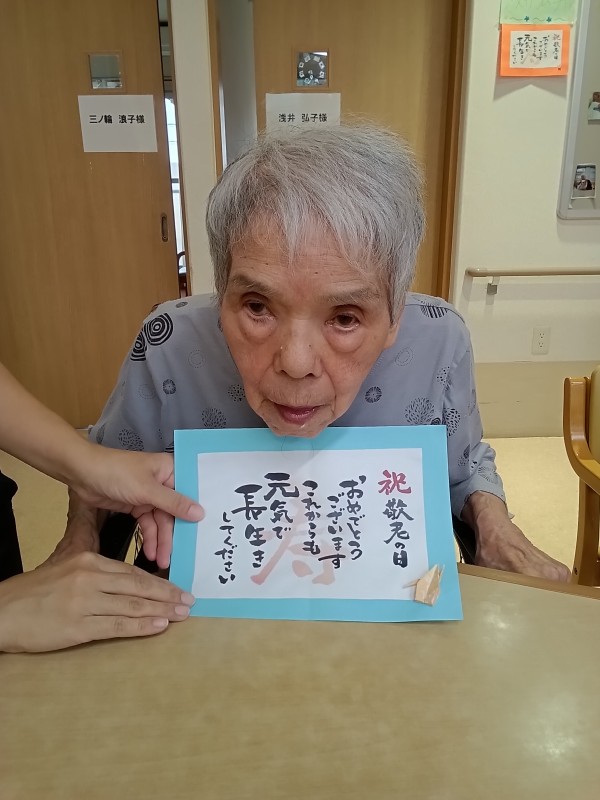 三ノ輪 浪子様
浅井 弘子様
祝 敬老の日
おめでとう
ございます
これからも
元気で
長生き
してください
寿